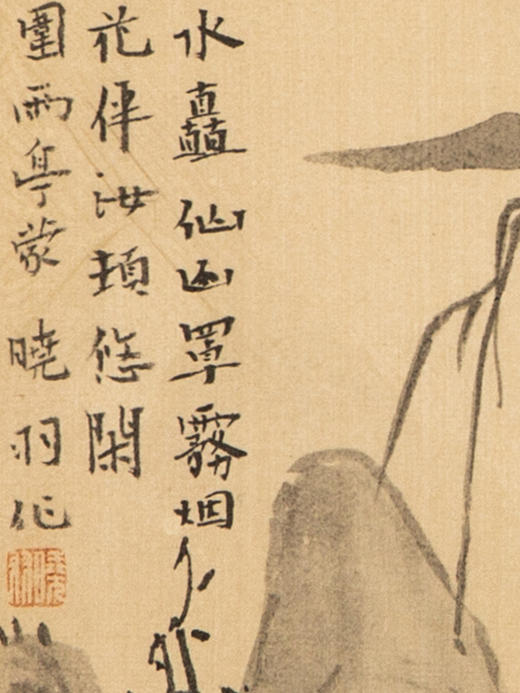 水矗仙山罩霧烟
花伴汝悠閑
圍雨亭蒙 曉羽作